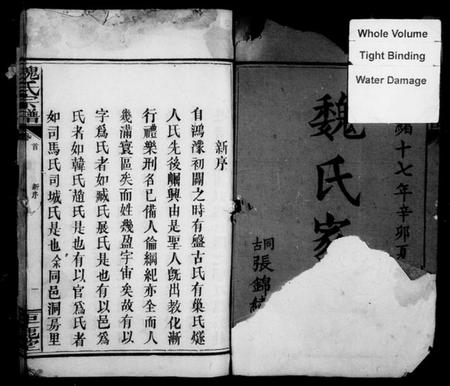 Whole Volume
Tight Binding
Water Damage
緒十七年辛卯夏
魏氏家
同
古
張錦
新序
自鴻濛初闢之時有盤古氏有巢氏燧
人氏先後嗣興由是聖人旣出教化漸
行禮樂刑名已備人倫綱紀亦全而人
幾滿寰區矣而姓幾盈宇宙矣故有以
字爲氏者如臧氏展氏是也有以邑爲
氏者如韓氏趙氏是也有以官爲氏者
如司馬氏司城氏是也余同邑洞房里
魏氏宗譜
首
新序
一
鉅鹿堂